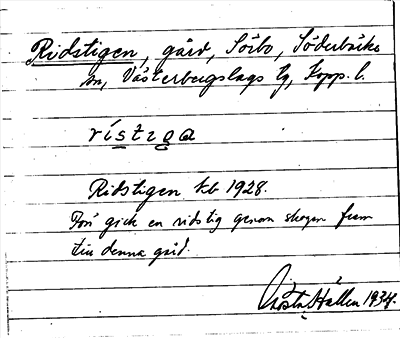 Ridstigen, gård, Sörbo, Söderbärke
sn, Västerbergslags tg, Kopp. l.
rístiga
Ridstigen kb 1928.
Förr gick en ridstig genom skogen fram
till denna gård.
Gösta Hallen 1934.